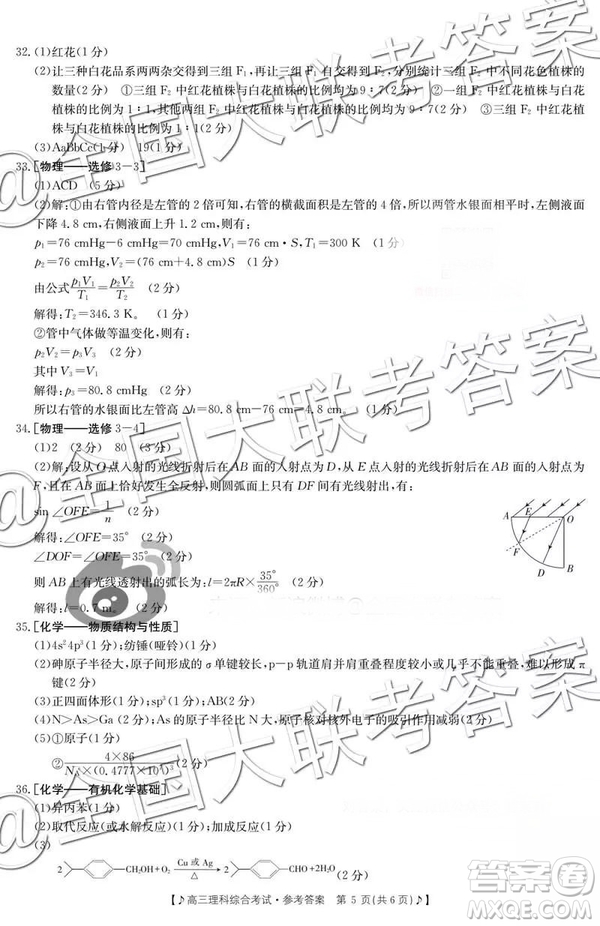 32. (1)红花(1分)
(2)让三种白花品系两两杂交得到三组 F₁,再让三组 F₁ 自交得到 F₂,分别统计三组 F₂ 中不同花色植株的
数量(2分) ①三组 F₂ 中红花植株与白花植株的比例均为 9∶7(2分) ②一组 F₂ 中红花植株与白花
植株的比例为 1∶1,其他两组 F₂ 中红花植株与白花植株的比例均为 9∶7(2分) ③三组 F₂ 中红花植
株与白花植株的比例均为 1∶1(2分)
(3)AaBbCc(1分) 19(1分)
33. [物理——选修 3-3]
(1)ACD (5分)
(2)解:①由于右管内径是左管的 2 倍可知,右管的横截面积是左管的 4 倍,所以两管水银面相平时,左液面
下降 4.8 cm,右侧液面上升 1.2 cm,则有:
p₁=76 cmHg-6 cmHg=70 cmHg,V₁=76 cm·S,T₁=300 K (1分)
p₂=76 cmHg,V₂=(76 cm+4.8 cm)S (1分)
由公式 p₁V₁/T₁=p₂V₂/T₂ (2分)
解得:T₂=346.3 K。 (1分)
②管中气体做等温变化,则有:
p₂V₂=p₃V₃ (2分)
其中 V₃=V₁
解得:p₃=80.8 cmHg (2分)
所以右管的水银面比左管高 Δh=80.8 cm-76 cm=4.8 cm。 (1分)
34. [物理——选修 3-4]
(1)2 (2分) 80 (3分)
(2)解:设从 O 点入射的光线折射后在 AB 面的入射点为 D,从 E 点入射的光线折射后在 AB 面的入射点为
F,且在 AB 面上恰好发生全反射,则圆弧面上只有 DF 间有光线射出,有:
sin∠OFE=1/n (2分)
解得:∠OFE=35° (2分)
∠DOF=∠OFE=35° (2分)
则 AB 上有光线透射出的弧长为:l=2πR×35°/360° (2分)
解得:l=0.7 m。 (2分)
A E O
F
D B
35. [化学——物质结构与性质]
(1)4s²4p³(1分);纺锤(哑铃)(1分)
(2)砷原子半径大,原子间形成的 σ 单键较长,p-p 轨道肩并肩重叠程度较小或几乎不能重叠,难以形成 π
键(2分)
(3)正四面体形(1分);sp³(1分);AB(2分)
(4)N>As>Ga(2分);As 的原子半径比 N 大,原子核对核外电子的吸引作用减弱(2分)
(5)①原子(1分)
②4×86/N_A×(0.4777×10⁷)³(2分)
36. [化学——有机化学基础]
(1)异丙苯(1分)
(2)取代反应(或水解反应)(1分);加成反应(1分)
(3)
2 CH₂OH+O₂ Cu 或 Ag △ 2 CHO+2H₂O (2分)
【♪高三理科综合考试·参考答案 第 5 页(共 6 页)♪】
@全国大联考答案
@全国大联考答案
@全国大联考答案
答案圈
MXQE.COM